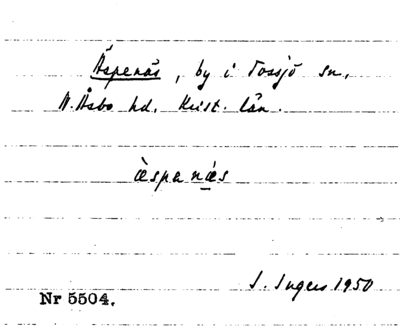 Äspenäs, by i Tossjö sn,
N. Åsbo hd. Krist. län.
èspanæs
I. Ingers 1950
Nr 5504.